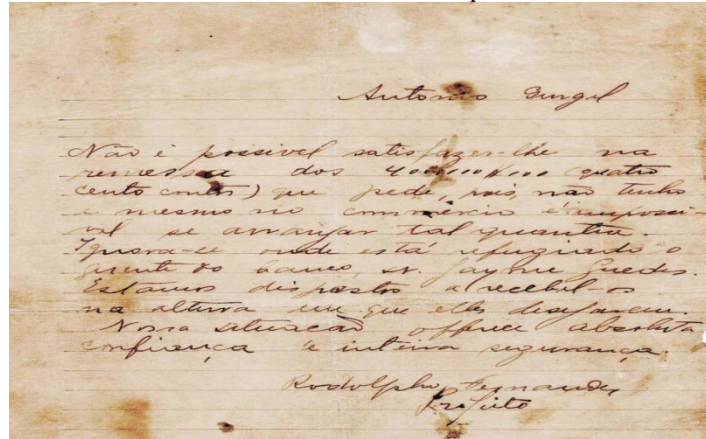 Antonio Gurgel
Não é possivel satisfazer-lhe na
remessa dos 400.000$000 (quatro
centos contos) que pede, pois não tenho
e mesmo no commércio é impossi-
vel se arranjar tal quantia.
Ignora-se onde está refugiado o
gerente do banco, sr. Jayme Guedes.
Estamos dispostos a recebel-os
na altura em que elles desejarem.
Nossa situacão offrece absoluta
confiança e inteira segurança.
Rodolpho Fernandes
Prefeito